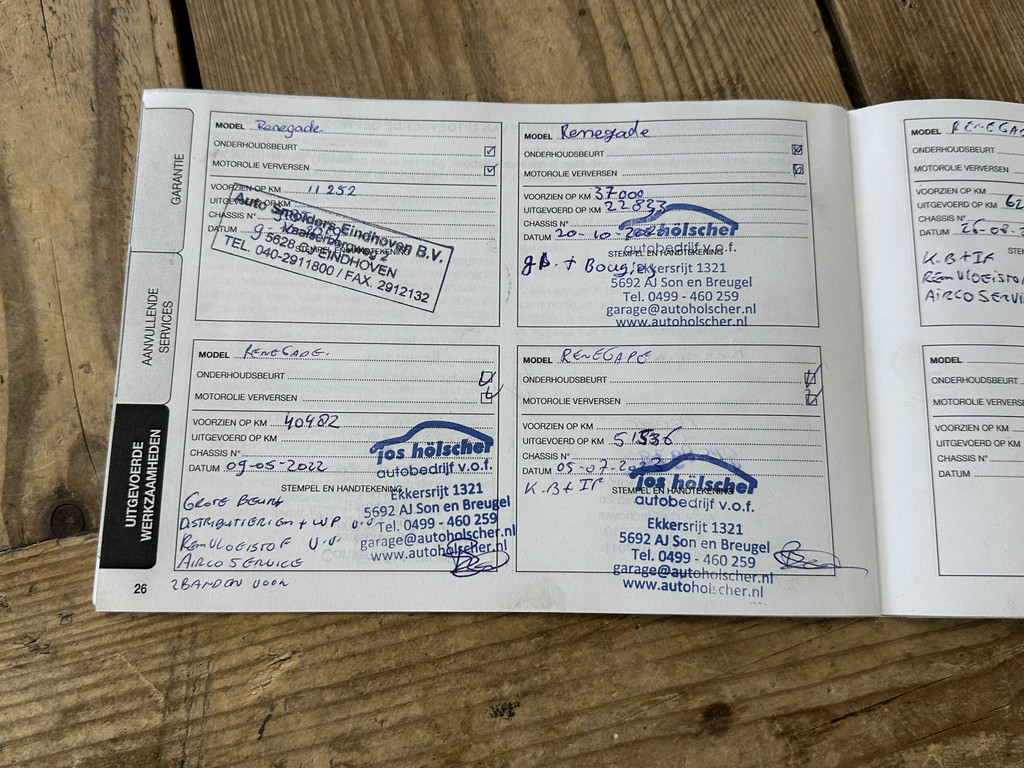 GARANTIE
AANVULLENDE
SERVICES
UITGEVOERDE
WERKZAAMHEDEN
26
MODEL Renegade
ONDERHOUDSBEURT
MOTOROLIE VERVERSEN
VOORZIEN OP KM 11 252
UITGEVOERD OP KM
CHASSIS N°
DATUM
STEMPEL EN HANDTEKENING
Auto Smeders Eindhoven B.V.
5628 EINDHOVEN
TEL. 040-2911800 / FAX. 2912132
MODEL Renegade
ONDERHOUDSBEURT
MOTOROLIE VERVERSEN
VOORZIEN OP KM 37000
UITGEVOERD OP KM 22833
CHASSIS N°
DATUM 20-10-
STEMPEL EN HANDTEKENING
gb. + Bougiex
hölscher
autobedrijf v.o.f.
Ekkersrijt 1321
5692 AJ Son en Breugel
Tel. 0499 - 460 259
garage@autoholscher.nl
www.autoholscher.nl
MODEL RENEGADE.
ONDERHOUDSBEURT
MOTOROLIE VERVERSEN
VOORZIEN OP KM 40482
UITGEVOERD OP KM
CHASSIS N°
DATUM 09-05-2022
STEMPEL EN HANDTEKENING
GROTE BEURT
DISTRIBUTIERIEM + WP v.v
REMVLOEISTOF v.v.
AIRCO SERVICE
2BANDEN VOOR
jos hölscher
autobedrijf v.o.f.
Ekkersrijt 1321
5692 AJ Son en Breugel
Tel. 0499 - 460 259
garage@autoholscher.nl
www.autoholscher.nl
MODEL RENEGADE
ONDERHOUDSBEURT
MOTOROLIE VERVERSEN
VOORZIEN OP KM
UITGEVOERD OP KM 51536
CHASSIS N°
DATUM 05-07-
STEMPEL EN HANDTEKENING
K.B + IF
jos hölscher
autobedrijf v.o.f.
Ekkersrijt 1321
5692 AJ Son en Breugel
Tel. 0499 - 460 259
garage@autoholscher.nl
www.autoholscher.nl
MODEL RENEGA
ONDERHOUDSBEURT
MOTOROLIE VERVERSEN
VOORZIEN OP KM
UITGEVOERD OP KM 62
CHASSIS N°
DATUM 26-08-
STE
K.B + IF
REMVLOEISTO
AIRCO SERVI
MODEL
ONDERHOUDSBEURT
MOTOROLIE VERVERS
VOORZIEN OP KM
UITGEVOERD OP KM
CHASSIS N°
DATUM